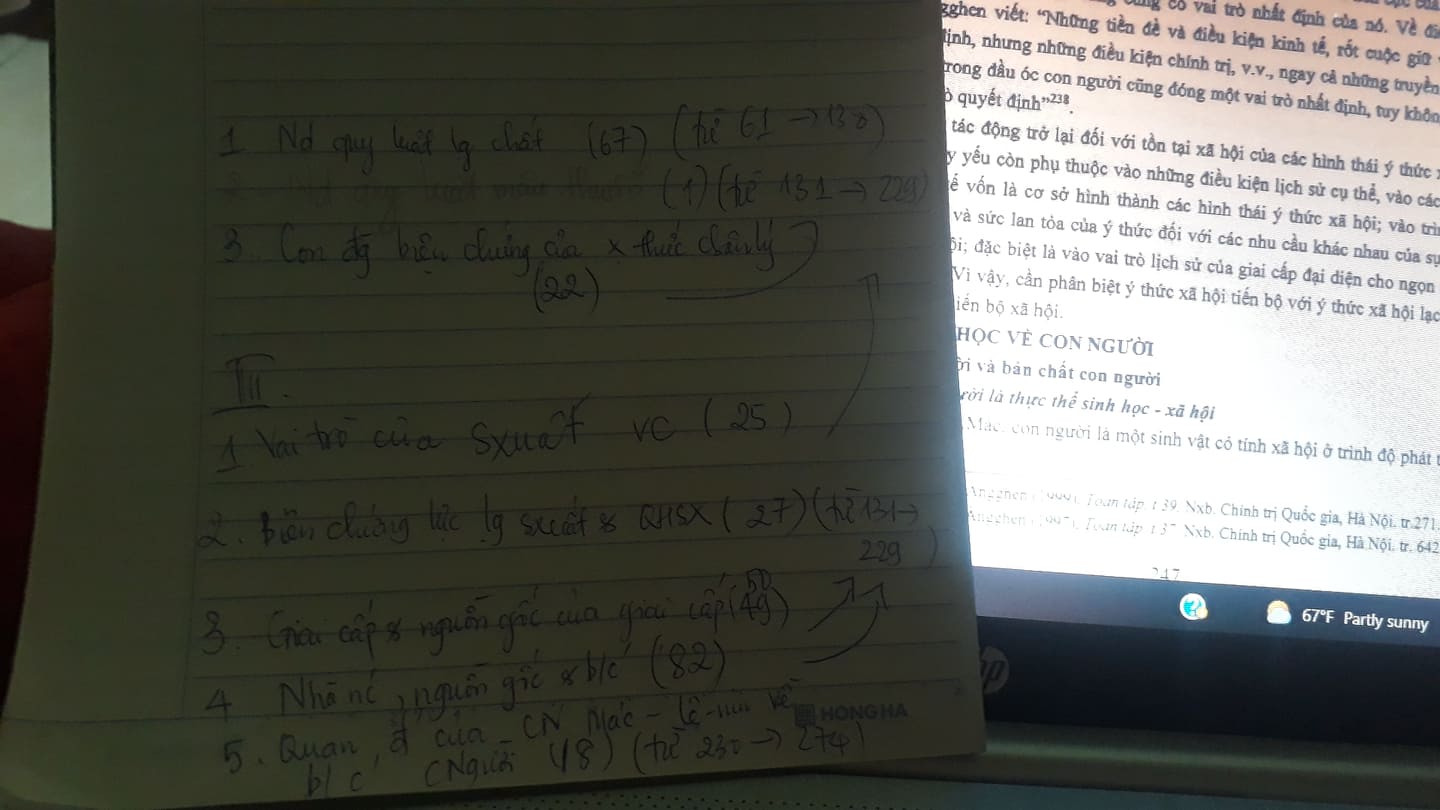 1 Nd quy luật lg chất (67) (từ 61 → 130)
(1) (từ 131 → 229)
3. Con đg biện chứng của thức chân lý
(22)
III.
1 Vai trò của sxuất VC (25)
2. Biện chứng lực lg sxuất & QHSX (27) (từ 131 →
229)
3. Giai cấp & nguồn gốc của giai cấp
4 Nhà nc, nguồn gốc & b/c (82)
5. Quan đ của CN Mác - Lê-nin về
b/c CNgười (18) (từ 230 → 274)
HONG HA
có vai trò nhất định của nó. Về
gghen viết: “Những tiền đề và điều kiện kinh tế, rốt cuộc giữ
định, nhưng những điều kiện chính trị, v.v., ngay cả những truyền
trong đầu óc con người cũng đóng một vai trò nhất định, tuy khôn
ò quyết định”238.
tác động trở lại đối với tồn tại xã hội của các hình thái ý thức
y yếu còn phụ thuộc vào những điều kiện lịch sử cụ thể, vào các
ế vốn là cơ sở hình thành các hình thái ý thức xã hội; vào trìn
và sức lan tỏa của ý thức đối với các nhu cầu khác nhau của sự
ội; đặc biệt là vào vai trò lịch sử của giai cấp đại diện cho ngọn
Vì vậy, cần phân biệt ý thức xã hội tiến bộ với ý thức xã hội lạc
iến bộ xã hội.
HỌC VỀ CON NGƯỜI
ời và bản chất con người
ười là thực thể sinh học - xã hội
Mác, con người là một sinh vật có tính xã hội ở trình độ phát t
Toàn tập, t.39, Nxb. Chính trị Quốc gia, Hà Nội, tr.271.
Toàn tập, t.37, Nxb. Chính trị Quốc gia, Hà Nội, tr. 642
247
67°F Partly sunny
hp